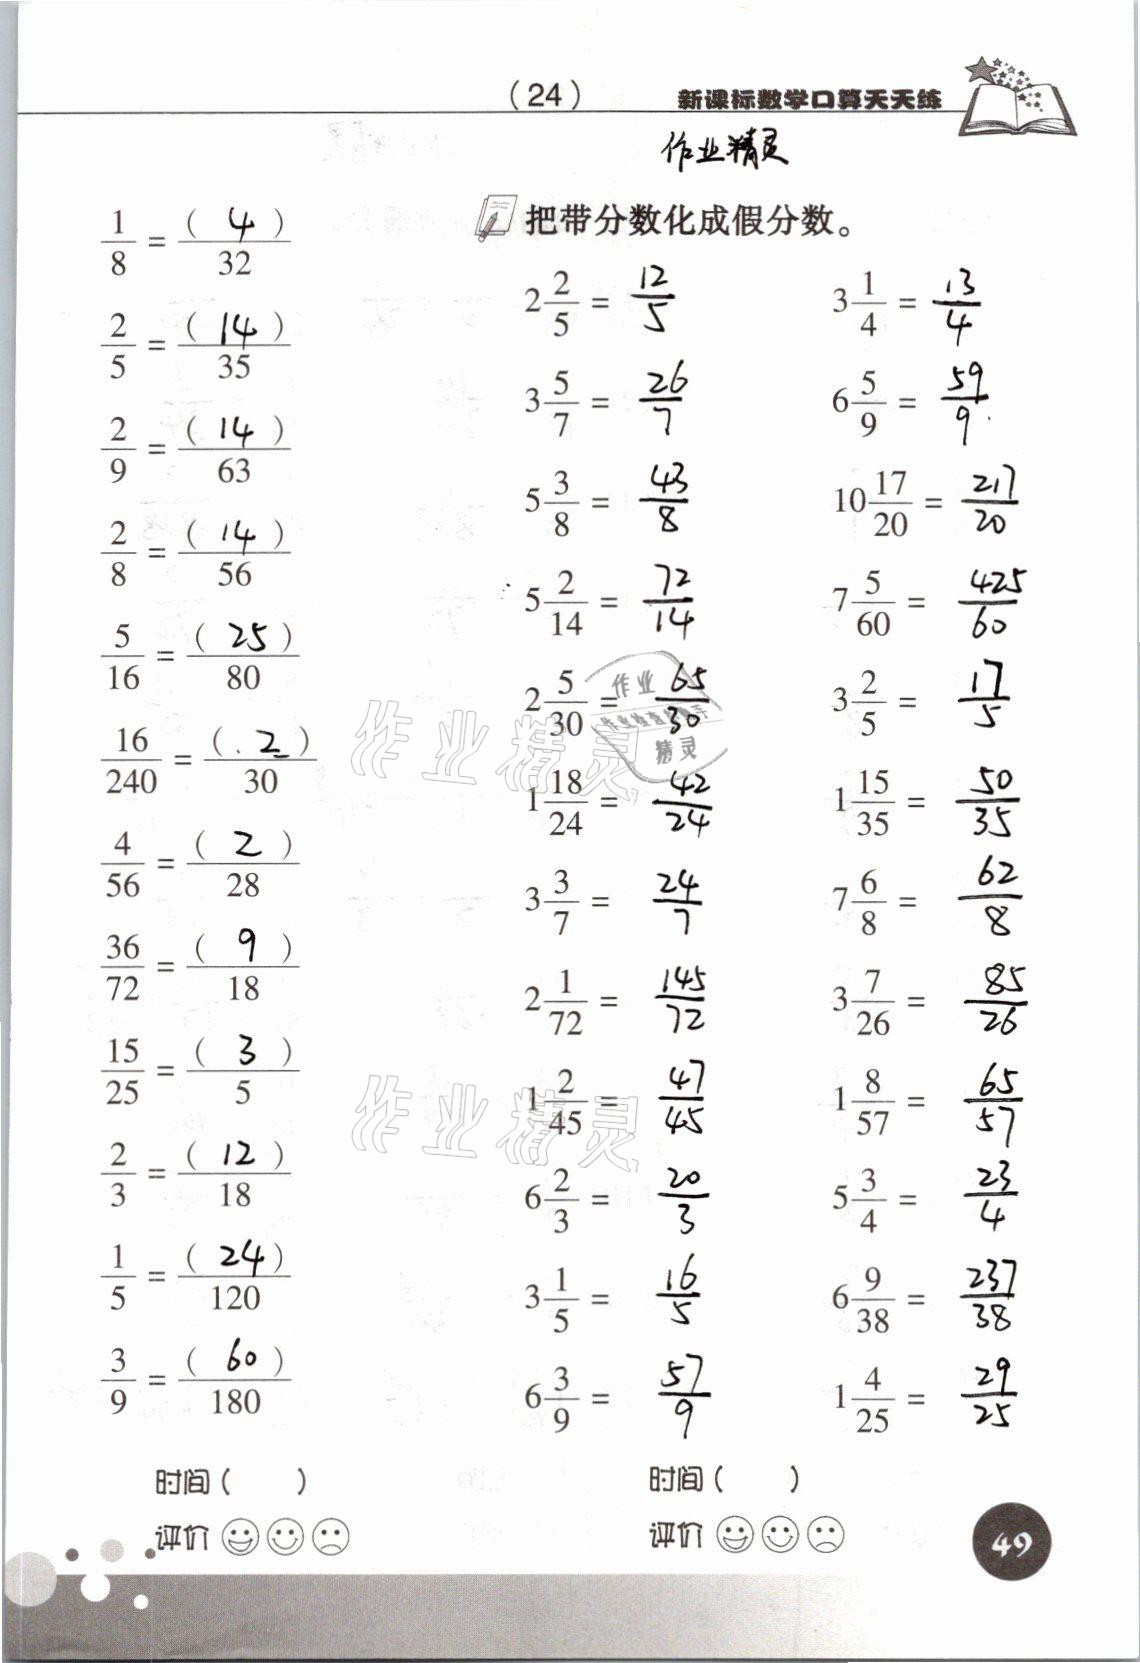 (24)
新课标数学口算天天练
作业精灵
1/8 = (4)/32
2/5 = (14)/35
2/9 = (14)/63
2/8 = (14)/56
5/16 = (25)/80
16/240 = (2)/30
4/56 = (2)/28
36/72 = (9)/18
15/25 = (3)/5
2/3 = (12)/18
1/5 = (24)/120
3/9 = (60)/180
时间( )
评价
把带分数化成假分数。
2 2/5 = 12/5 3 1/4 = 13/4
3 5/7 = 26/7 6 5/9 = 59/9
5 3/8 = 43/8 10 17/20 = 217/20
5 2/14 = 72/14 7 5/60 = 425/60
2 5/30 = 65/30 3 2/5 = 17/5
1 18/24 = 42/24 1 15/35 = 50/35
3 3/7 = 24/7 7 6/8 = 62/8
2 1/72 = 145/72 3 7/26 = 85/26
1 2/45 = 47/45 1 8/57 = 65/57
6 2/3 = 20/3 5 3/4 = 23/4
3 1/5 = 16/5 6 9/38 = 237/38
6 3/9 = 57/9 1 4/25 = 29/25
时间( )
评价
49
作业精灵
作业
作业检查小助手
精灵
作业精灵